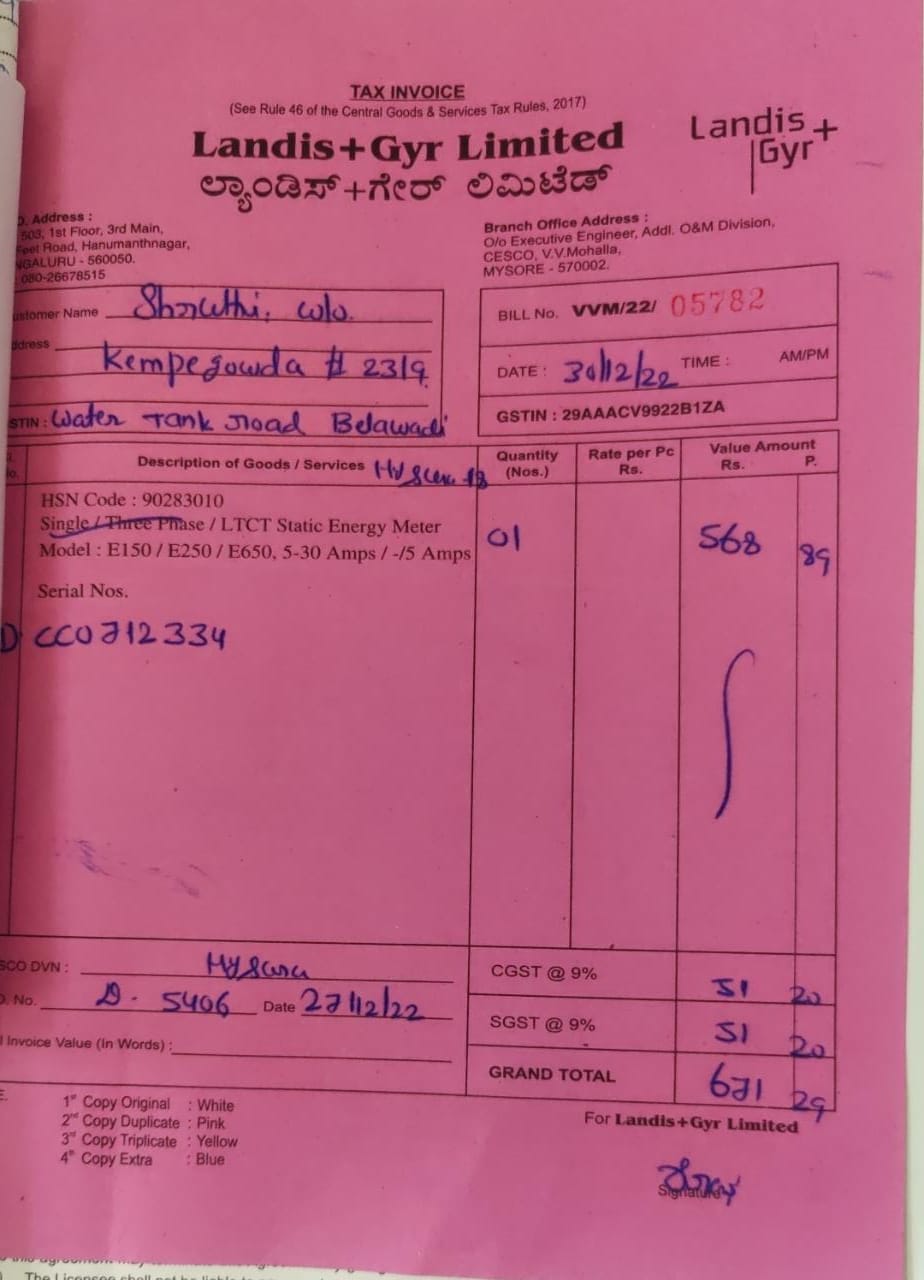 TAX INVOICE
(See Rule 46 of the Central Goods & Services Tax Rules, 2017)
Landis+Gyr Limited
ಲ್ಯಾಂಡಿಸ್+ಗೇರ್ ಲಿಮಿಟೆಡ್
Landis+
Gyr
. Address :
503, 1st Floor, 3rd Main,
eet Road, Hanumanthnagar,
NGALURU - 560050.
080-26678515
Branch Office Address :
O/o Executive Engineer, Addl. O&M Division,
CESCO, V.V.Mohalla,
MYSORE - 570002.
ustomer Name Shruthi. w/o.
ddress Kempegowda # 2319
STIN : Water Tank road Belawadi
BILL No. VVM/22/ 05782
DATE : 30/12/22 TIME : AM/PM
GSTIN : 29AAACV9922B1ZA
Description of Goods / Services
Quantity (Nos.)
Rate per Pc Rs.
Value Amount Rs. P.
HSN Code : 90283010
Single / Three Phase / LTCT Static Energy Meter
Model : E150 / E250 / E650, 5-30 Amps / -/5 Amps
01 568 89
Serial Nos.
CC0712334
SCO DVN : Mysuru
. No. D. 5406 Date 27/12/22
l Invoice Value (In Words) :
CGST @ 9% 51 20
SGST @ 9% 51 20
GRAND TOTAL 671 29
1st Copy Original : White
2nd Copy Duplicate : Pink
3rd Copy Triplicate : Yellow
4th Copy Extra : Blue
For Landis+Gyr Limited
Signature